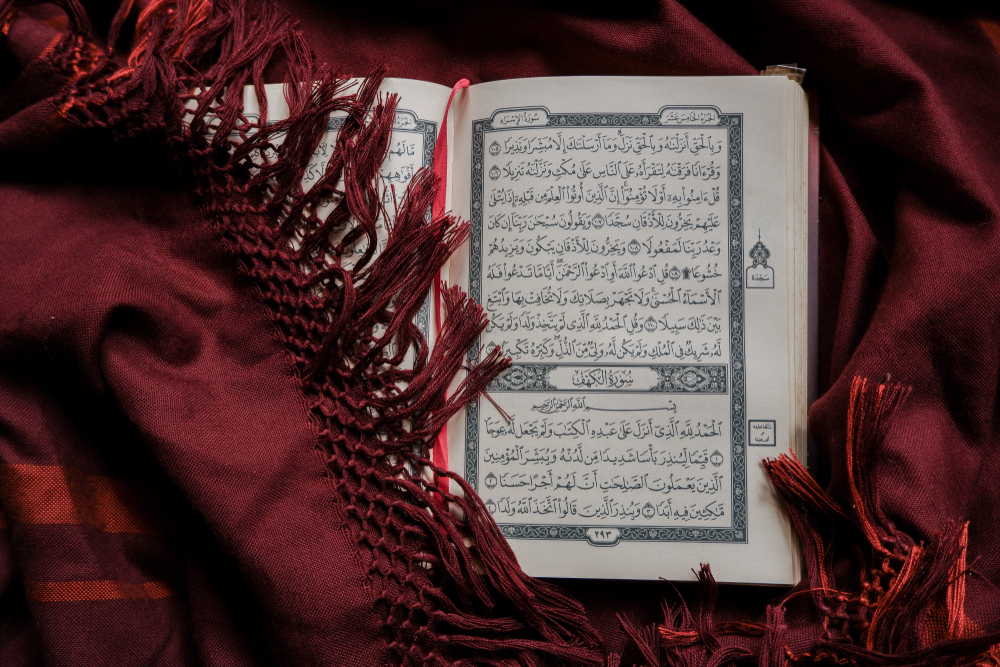 الجُزْءُ الخَامِسَ عَشَرَ سُورَةُ الإِسْرَاءِ
وَبِٱلْحَقِّ أَنزَلْنَٰهُ وَبِٱلْحَقِّ نَزَلَۗ وَمَآ أَرْسَلْنَٰكَ إِلَّا مُبَشِّرًا وَنَذِيرًا ١٠٥
وَقُرْءَانًا فَرَقْنَٰهُ لِتَقْرَأَهُۥ عَلَى ٱلنَّاسِ عَلَىٰ مُكْثٍ وَنَزَّلْنَٰهُ تَنزِيلًا ١٠٦
قُلْ ءَامِنُوا۟ بِهِۦٓ أَوْ لَا تُؤْمِنُوٓا۟ۚ إِنَّ ٱلَّذِينَ أُوتُوا۟ ٱلْعِلْمَ مِن قَبْلِهِۦٓ إِذَا يُتْلَىٰ
عَلَيْهِمْ يَخِرُّونَ لِلْأَذْقَانِ سُجَّدًا ١٠٧ وَيَقُولُونَ سُبْحَٰنَ رَبِّنَآ إِن كَانَ
وَعْدُ رَبِّنَا لَمَفْعُولًا ١٠٨ وَيَخِرُّونَ لِلْأَذْقَانِ يَبْكُونَ وَيَزِيدُهُمْ
خُشُوعًا۩ ١٠٩ قُلِ ٱدْعُوا۟ ٱللَّهَ أَوِ ٱدْعُوا۟ ٱلرَّحْمَٰنَۖ أَيًّا مَّا تَدْعُوا۟ فَلَهُ
ٱلْأَسْمَآءُ ٱلْحُسْنَىٰۚ وَلَا تَجْهَرْ بِصَلَاتِكَ وَلَا تُخَافِتْ بِهَا وَٱبْتَغِ
بَيْنَ ذَٰلِكَ سَبِيلًا ١١٠ وَقُلِ ٱلْحَمْدُ لِلَّهِ ٱلَّذِى لَمْ يَتَّخِذْ وَلَدًا وَلَمْ يَكُن
لَّهُۥ شَرِيكٌ فِى ٱلْمُلْكِ وَلَمْ يَكُن لَّهُۥ وَلِىٌّ مِّنَ ٱلذُّلِّۖ وَكَبِّرْهُ تَكْبِيرًۢا
سُورَةُ الكَهْفِ
بِسْمِ ٱللَّهِ ٱلرَّحْمَٰنِ ٱلرَّحِيمِ
ٱلْحَمْدُ لِلَّهِ ٱلَّذِىٓ أَنزَلَ عَلَىٰ عَبْدِهِ ٱلْكِتَٰبَ وَلَمْ يَجْعَل لَّهُۥ عِوَجَاۜ
١ قَيِّمًا لِّيُنذِرَ بَأْسًا شَدِيدًا مِّن لَّدُنْهُ وَيُبَشِّرَ ٱلْمُؤْمِنِينَ
ٱلَّذِينَ يَعْمَلُونَ ٱلصَّٰلِحَٰتِ أَنَّ لَهُمْ أَجْرًا حَسَنًا ٢
مَّٰكِثِينَ فِيهِ أَبَدًا ٣ وَيُنذِرَ ٱلَّذِينَ قَالُوا۟ ٱتَّخَذَ ٱللَّهُ وَلَدًا ٤
٢٩٣
سَجْدَة